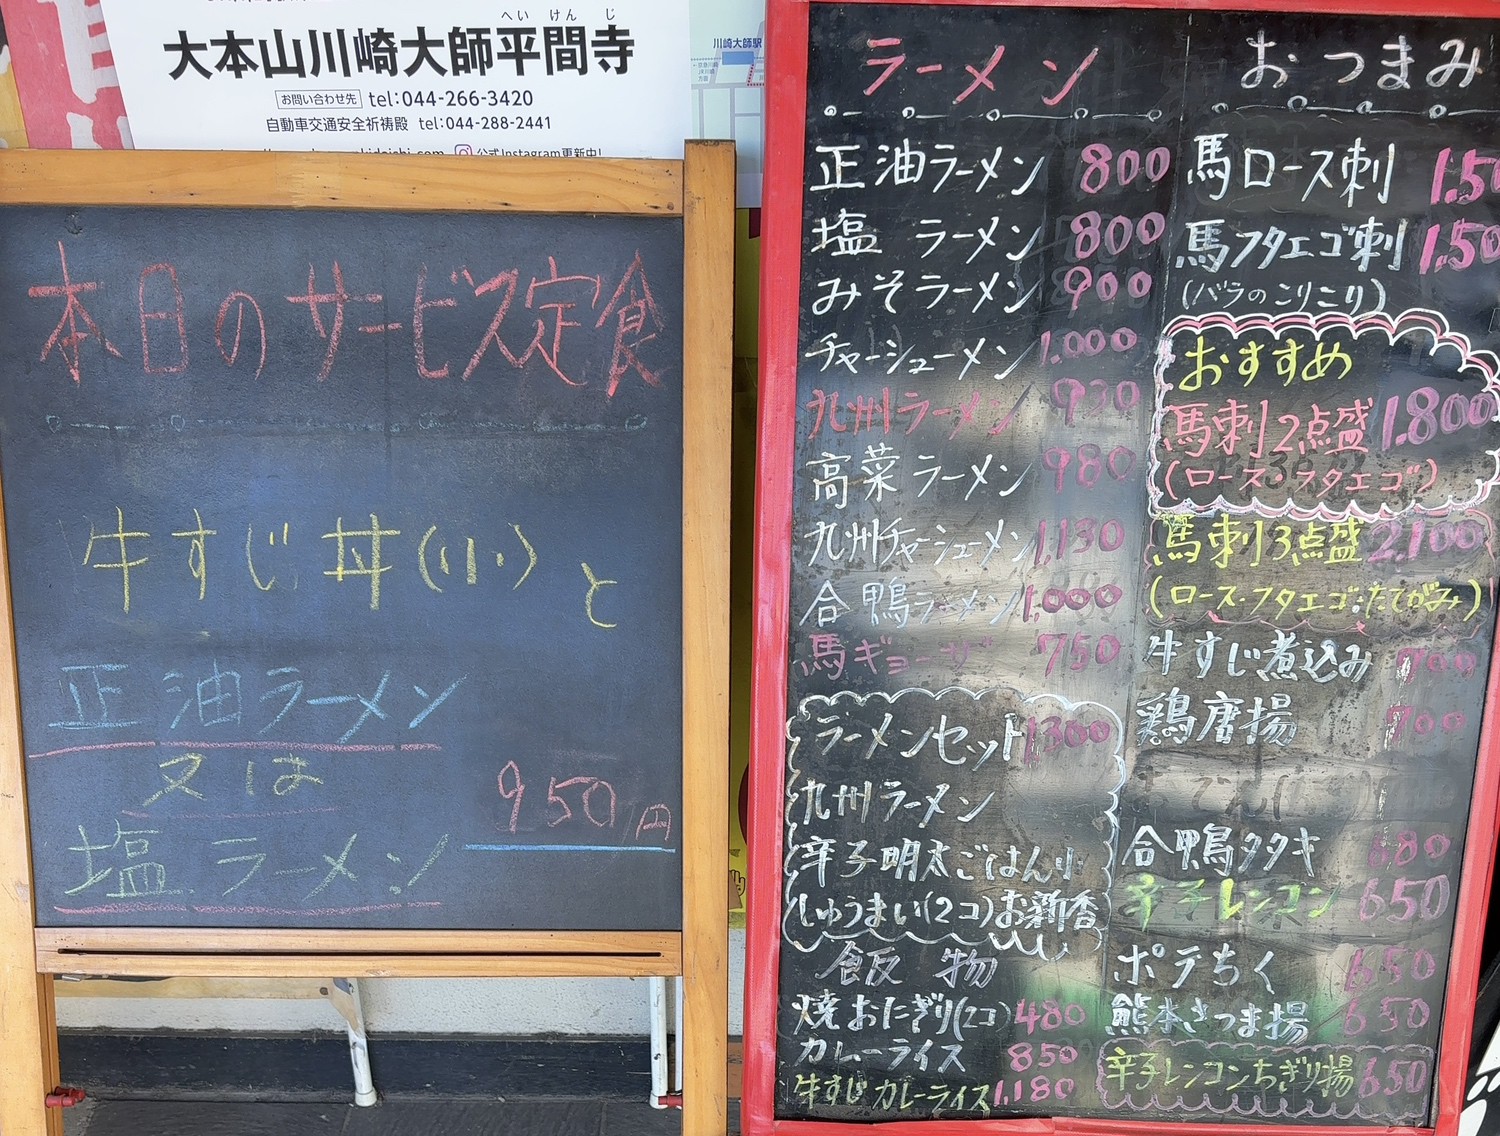 へいけんじ
大本山川崎大師平間寺
お問い合わせ先 tel:044-266-3420
自動車交通安全祈祷殿 tel:044-288-2441
公式Instagram更新中!
川崎大師駅
本日のサービス定食
牛すじ丼(小)と
正油ラーメン
又は
塩ラーメン
950円
ラーメン
正油ラーメン 800
塩 ラーメン 800
みそラーメン 900
チャーシューメン 1.000
九州ラーメン 930
高菜ラーメン 980
九州チャーシューメン 1,130
合鴨ラーメン 1,000
馬ギョーザ 750
ラーメンセット 1300
九州ラーメン
辛子明太ごはん小
しゅうまい(2コ)お新香
飯物
焼おにぎり(2コ) 480
カレーライス 850
牛すじカレーライス 1,180
おつまみ
馬ロース刺 1.50
馬フタエゴ刺 1.50
(バラのこりこり)
おすすめ
馬刺2点盛 1.800
(ロース・フタエゴ)
馬刺3点盛 2,100
(ロース・フタエゴ・たてがみ)
牛すじ煮込み 700
鶏唐揚 700
合鴨タタキ 680
辛子レンコン 650
ポテちく 650
熊本さつま揚 650
辛子レンコンちぎり揚 650